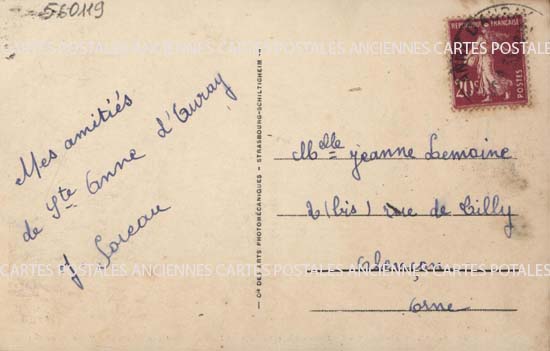 560119
RÉPUBLIQUE FRANÇAISE
20c
POSTES
CARTES POSTALES ANCIENNES CARTES POSTALES ANCIENNES CARTES POSTALES
Mes amitiés
de Ste Anne d'Auray
J Loreau
Cie DES ARTS PHOTOMÉCANIQUES - STRASBOURG-SCHILTIGHEIM
Melle Jeanne Lemoine
2 (bis) rue de Tilly
Alençon
Orne
CARTES POSTALES ANCIENNES CARTES POSTALES ANCIENNES CARTES POSTALES